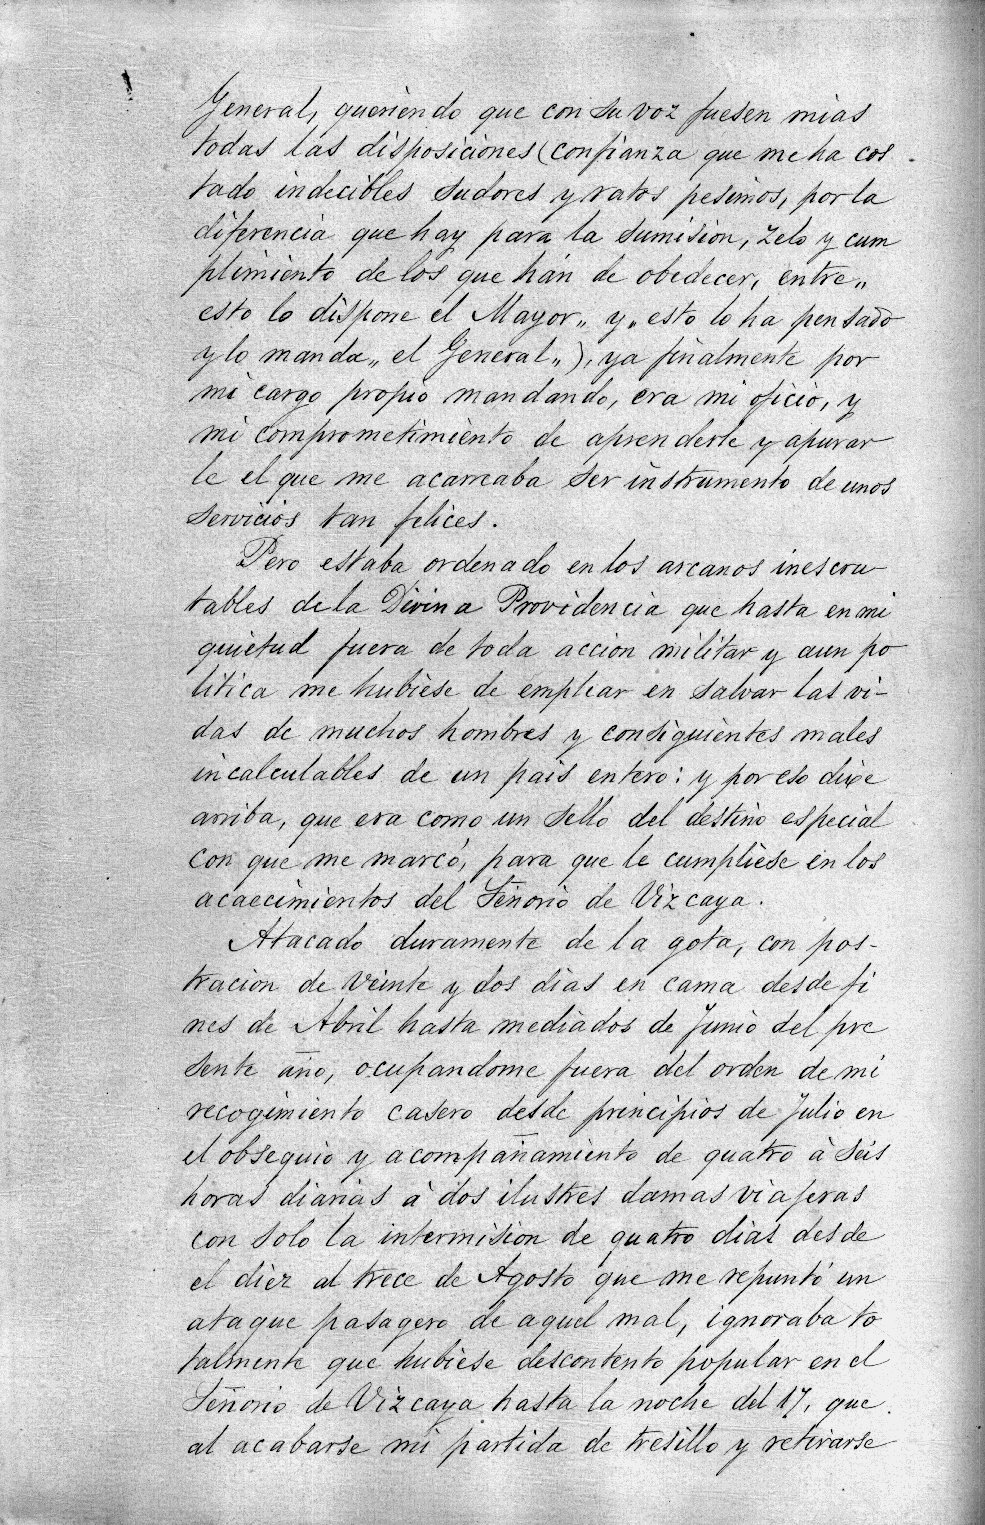 General, queriendo que con su voz fuesen mias
todas las disposiciones (confianza que me ha cos
tado indecibles sudores y ratos pesimos, por la
diferencia que hay para la sumision, zelo y cum
plimiento de los que hán de obedecer, entre „
esto lo dispone el Mayor „ y „ esto lo ha pensado
y lo manda „ el General „), ya finalmente por
mi cargo propio mandando, era mi oficio, y
mi comprometimiento de aprenderle y apurar
le el que me acarreaba ser instrumento de unos
servicios tan felices.
Pero estaba ordenado en los arcanos inescru
tables de la Divina Providencia que hasta en mi
quietud fuera de toda accion militar y aun po
litica me hubiese de emplear en salvar las vi-
das de muchos hombres y consiguientes males
incalculables de un pais entero: y por eso dixe
arriba, que era como un sello del destino especial
con que me marcó, para que le cumpliese en los
acaecimientos del Señorio de Vizcaya.
Atacado duramente de la gota, con pos-
tracion de veinte y dos dias en cama desde fi
nes de Abril hasta mediados de Junio del pre
sente año, ocupandome fuera del orden de mi
recogimiento casero desde principios de Julio en
el obsequio y acompañamiento de quatro à seis
horas diarias à dos ilustres damas viajeras
con solo la intermision de quatro dias desde
el diez al trece de Agosto que me repuntó un
ataque pasagero de aquel mal, ignoraba to
talmente que hubiese descontento popular en el
Señorio de Vizcaya hasta la noche del 17, que
al acabarse mi partida de tresillo y retirarse